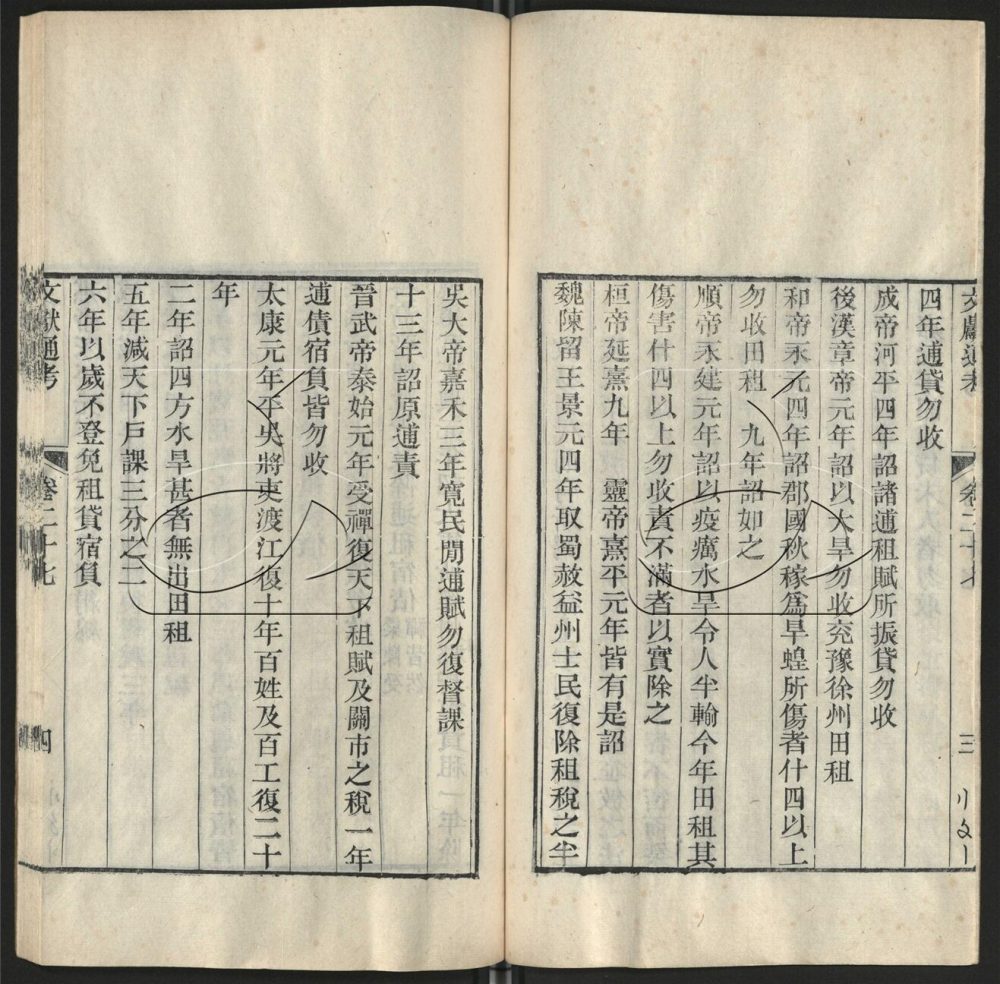 文獻通考 卷二十七 三
四年逋貸勿收
成帝河平四年詔諸逋租賦所振貸勿收
後漢章帝元年詔以大旱勿收兖豫徐州田租
和帝永元四年詔郡國秋稼爲旱蝗所傷者什四以上
勿收田租 九年詔如之
順帝永建元年詔以疫癘水旱令人半輸今年田租其
傷害什四以上勿收責不滿者以實除之
桓帝延熹九年 靈帝熹平元年皆有是詔
魏陳留王景元四年取蜀赦益州士民復除租稅之半
吳大帝嘉禾三年寛民閒逋賦勿復督課
十三年詔原逋責
晉武帝泰始元年受禪復天下租賦及關市之稅一年
逋債宿負皆勿收
太康元年平吳將吏渡江復十年百姓及百工復二十
年
二年詔四方水旱甚者無出田租
五年減天下戶課三分之二
六年以歲不登免租貸宿負
文獻通考 卷二十七 四